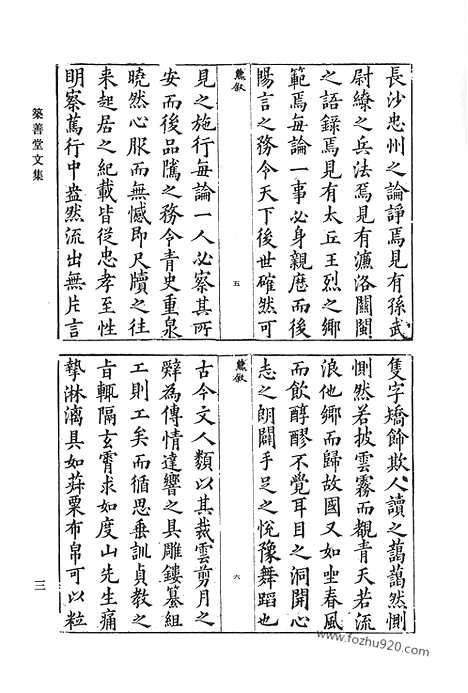 長沙忠州之論諍焉見有孫武
尉繚之兵法焉見有濂洛關閩
之語錄焉見有太丘王烈之鄉
範焉每論一事必身親歷而後
暢言之務令天下後世確然可
五
見之施行每論一人必察其所
安而後品隲之務令青史重泉
曉然心服而無憾即尺牘之往
来起居之紀載皆從忠孝至性
明察篤行中盎然流出無片言
隻字矯飾欺人讀之藹藹然惻
惻然若披雲霧而覩青天若流
浪他鄉而歸故國又如坐春風
而飲醇醪不覺耳目之洞開心
志之朗闢手足之悅豫舞蹈也
六
古今文人類以其裁雲剪月之
辭為傳情達響之具雕鏤纂組
工則工矣而循思垂訓貞教之
旨輒隔玄霄求如度山先生痛
摯淋漓具如菽粟布帛可以粒
築善堂文集
三
www.fozhu920.com